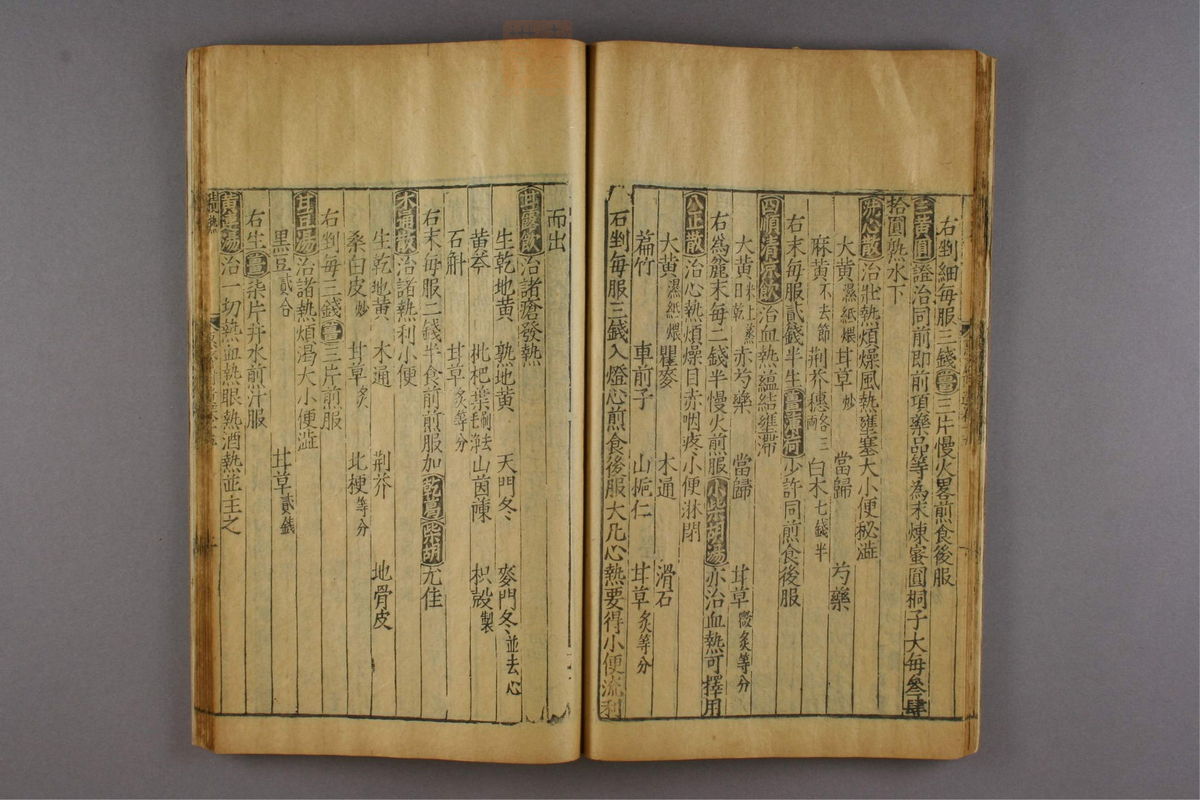 右剉細每服三錢薑三片慢火畧煎食後服
三黃圓證治同前即前項藥品等為末煉蜜圓桐子大每叄肆
拾圓熟水下
洗心散治壯熱煩燥風熱壅塞大小便秘澁
大黃濕紙煨 甘草炒 當歸 芍藥
麻黃不去節 荆芥穗各三兩 白朮七錢半
右末每服貳錢半生薑薄荷少許同煎食後服
四順清凉飲治血熱蘊結壅滯
大黃米上蒸日乾 赤芍藥 當歸 甘草微炙等分
右為麄末每二錢半慢火煎服小柴胡湯亦治血熱可擇用
八正散治心熱煩燥目赤咽疼小便淋閉
大黃濕紙煨 瞿麥 木通 滑石
萹竹 車前子 山梔仁 甘草炙等分
右剉每服三錢入燈心煎食後服大凡心熱要得小便流利
而出
甘露飲治諸瘡發熱
生乾地黃 熟地黃 天門冬 麥門冬並去心
黃芩 枇杷葉 山茵蔯 枳殼製
石斛 甘草炙等分
右末每服二錢半食前煎服加乾葛柴胡尤佳
木通散治諸熱利小便
生乾地黃 木通 荆芥 地骨皮
桑白皮炒 甘草炙 北梗等分
右剉每三錢薑三片煎服
甘豆湯治諸熱煩渴大小便澁
黑豆貳合 甘草貳錢
右生薑柒片井水煎汁服
黃連湯治一切熱血熱眼熱酒熱並主之